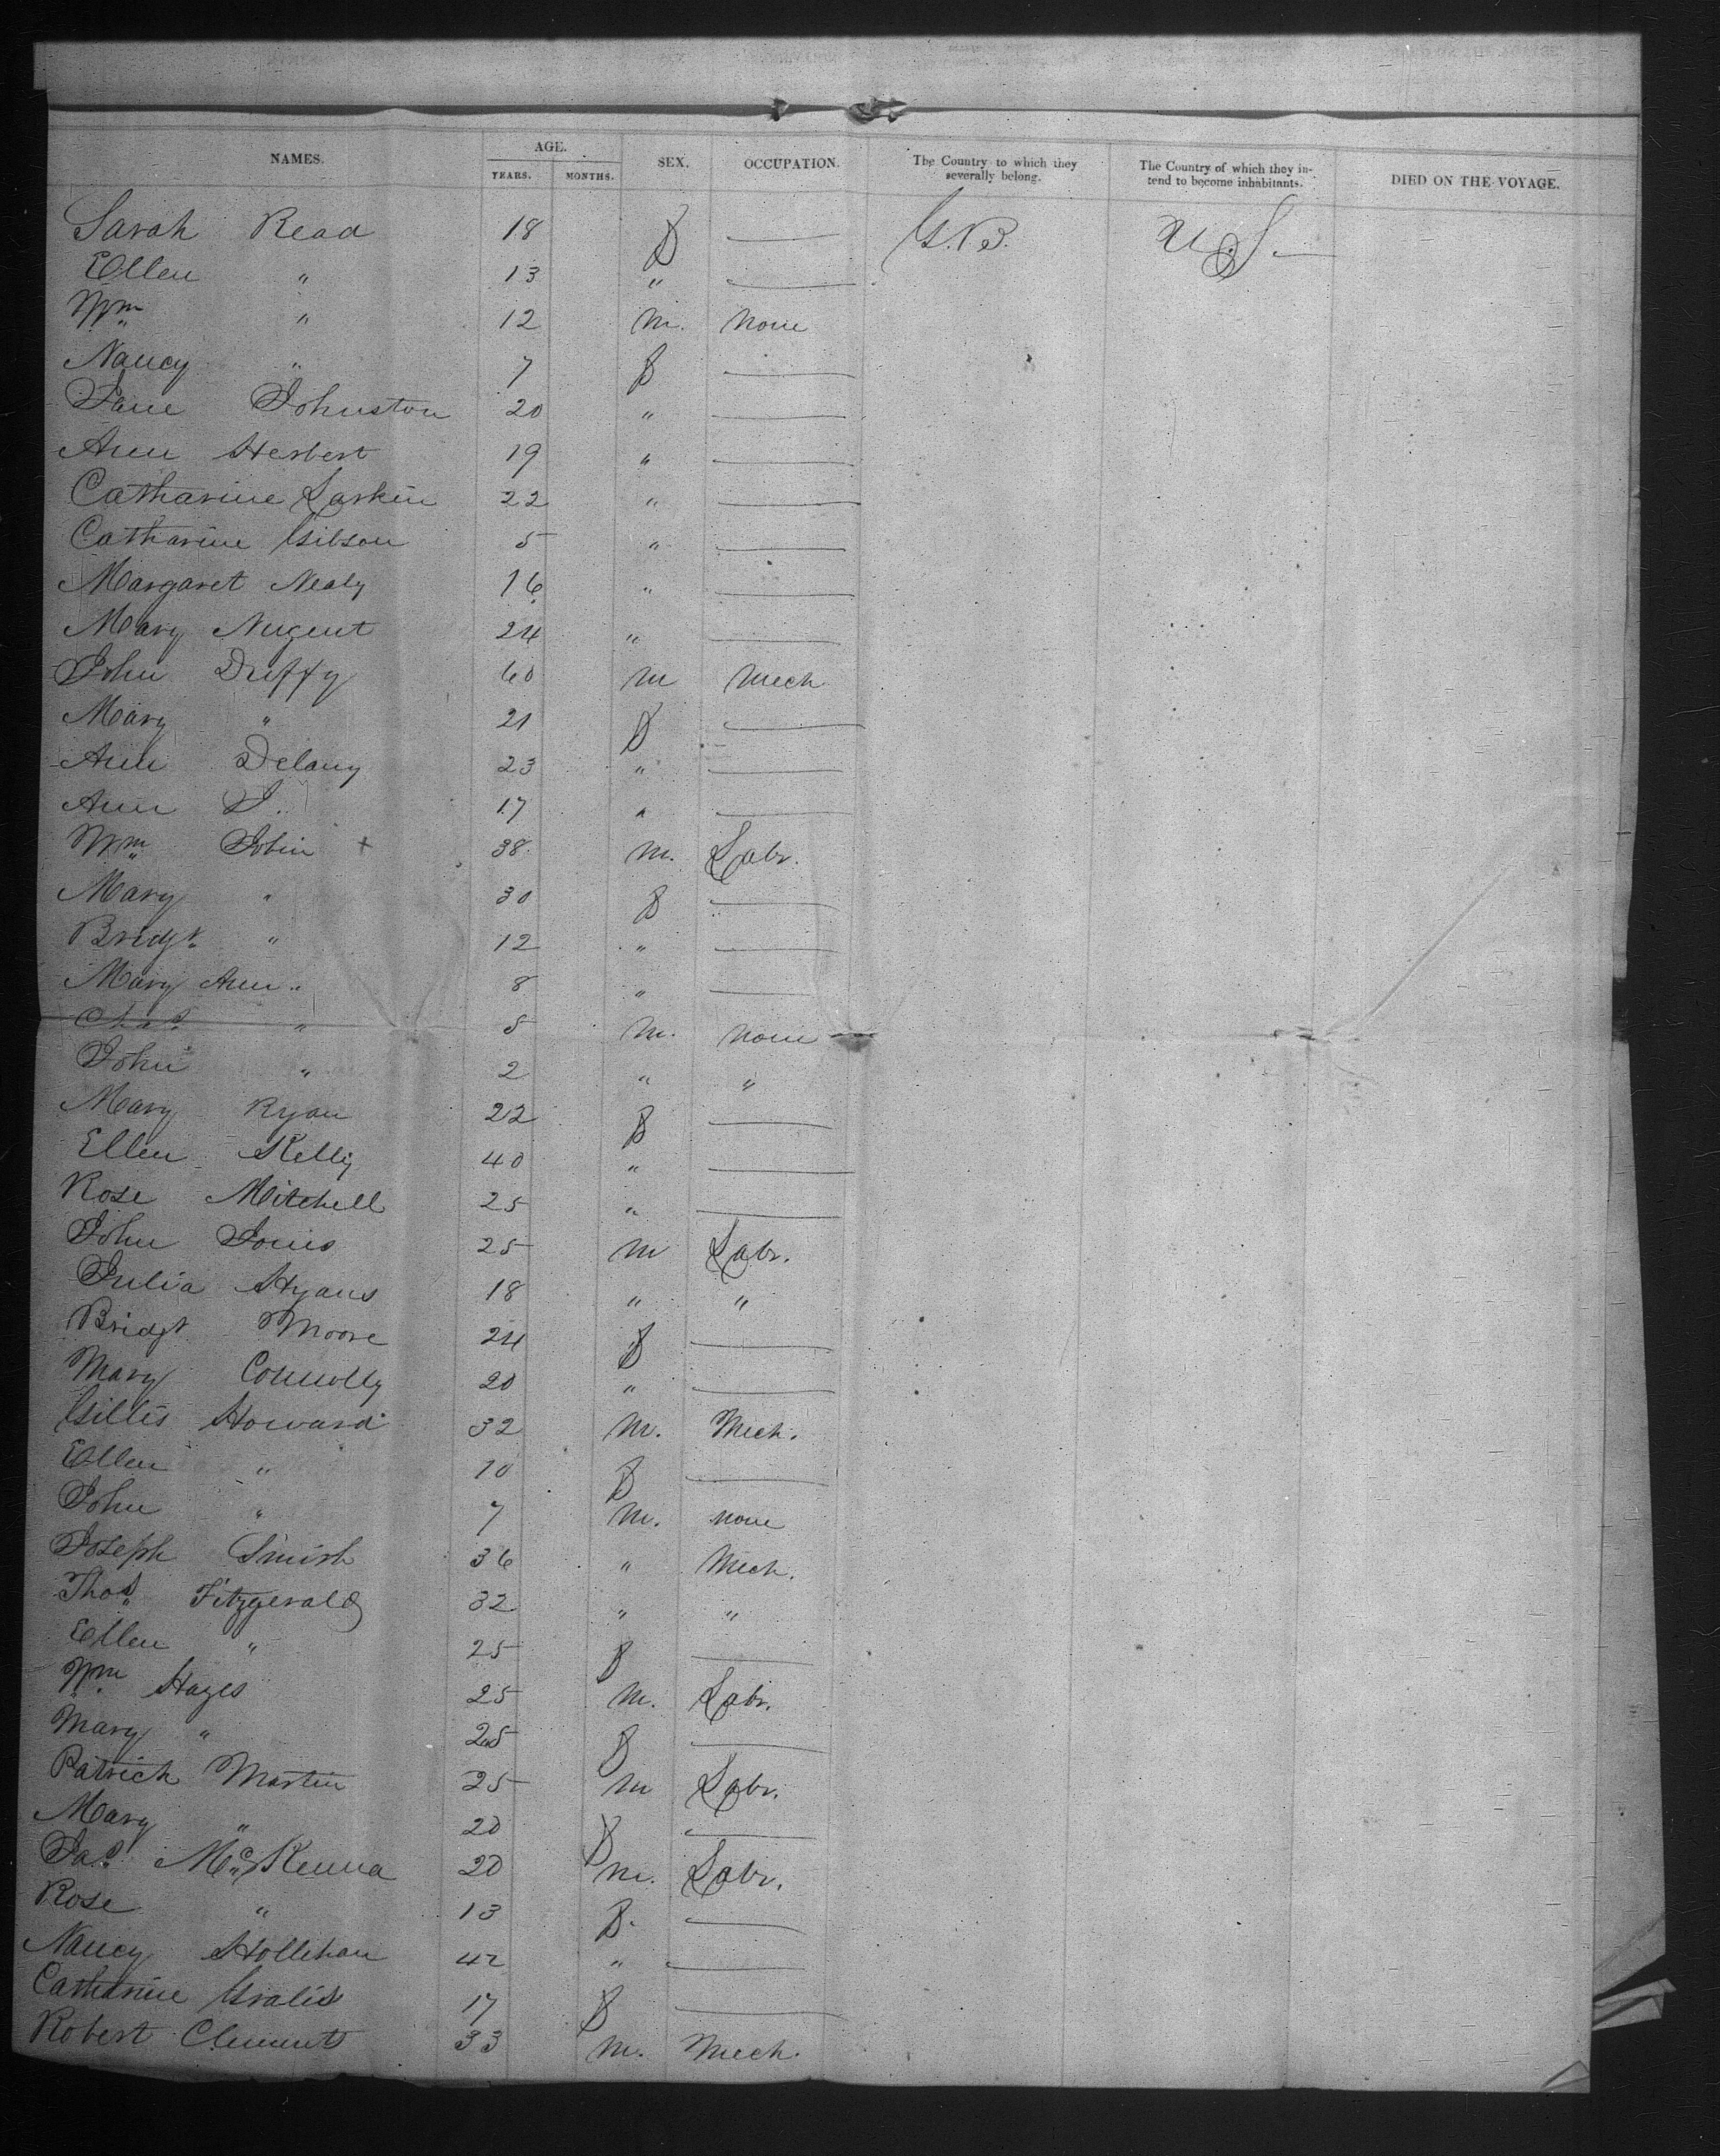 NAMES. AGE. YEARS. MONTHS. SEX. OCCUPATION. The Country to which they severally belong. The Country of which they intend to become inhabitants. DIED ON THE VOYAGE.
Sarah Read 18 f — G.B. U.S. —
Ellen " 13 " —
Wm " 12 m. none
Nancy " 7 f —
Jane Johnston 20 " —
Ann Herbert 19 " —
Catharine Larkin 22 " —
Catharine Gibson 5 " —
Margaret Nealy 16 " —
Mary Nugent 24 " —
John Duffy 60 m Mech
Mary " 21 f —
Ann Delany 23 " —
Ann J. 17 " —
Wm Tobin + 38 m. Labr.
Mary " 30 f —
Bridgt " 12 " —
Mary Ann " 8 " —
Chas " 5 m. none
John " 2 " "
Mary Ryan 22 f —
Ellen Kelly 40 " —
Rose Mitchell 25 " —
John 25 m Labr.
Julia Hyans 18 " "
Bridgt Moore 24 f —
Mary Connolly 20 " —
Gillis Howard 32 m. Mech.
Ellen " 10 f —
John " 7 m. none
Joseph Smish 36 " Mech.
Thos Fitzgerald 32 " "
Ellen " 25 f —
Wm Hayes 25 m. Labr.
Mary " 25 f —
Patrick Martin 25 m Labr.
Mary " 20 f —
Jas McKenna 20 m. Labr.
Rose " 13 f. —
Nancy Hollihan 42 " —
Catharine 17 f —
Robert Clements 33 m. Mech.